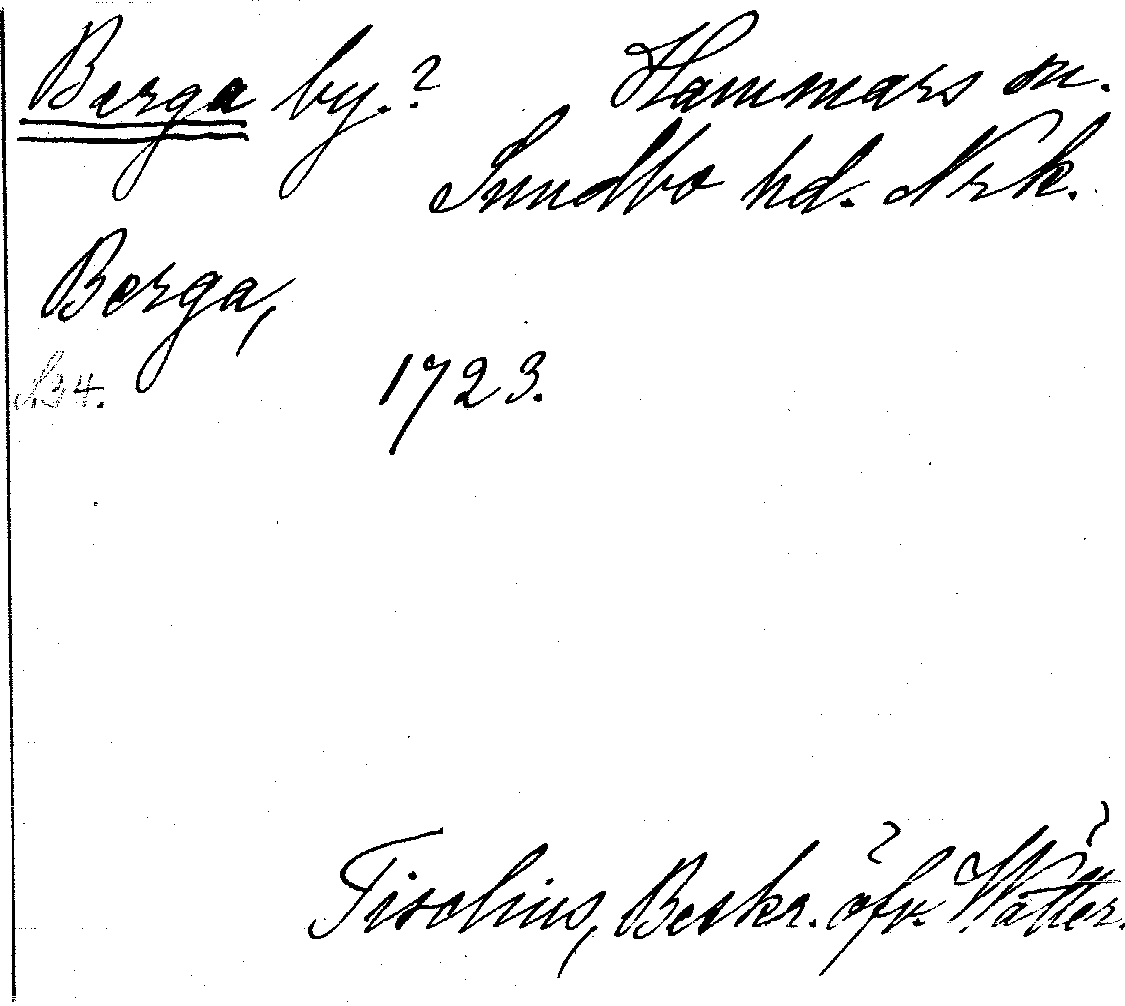 Berga by.? Hammars sn.
Sundbo hd. Nrk.
Berga,
1723.
Tiselius, Beskr. öfv. Wätter.